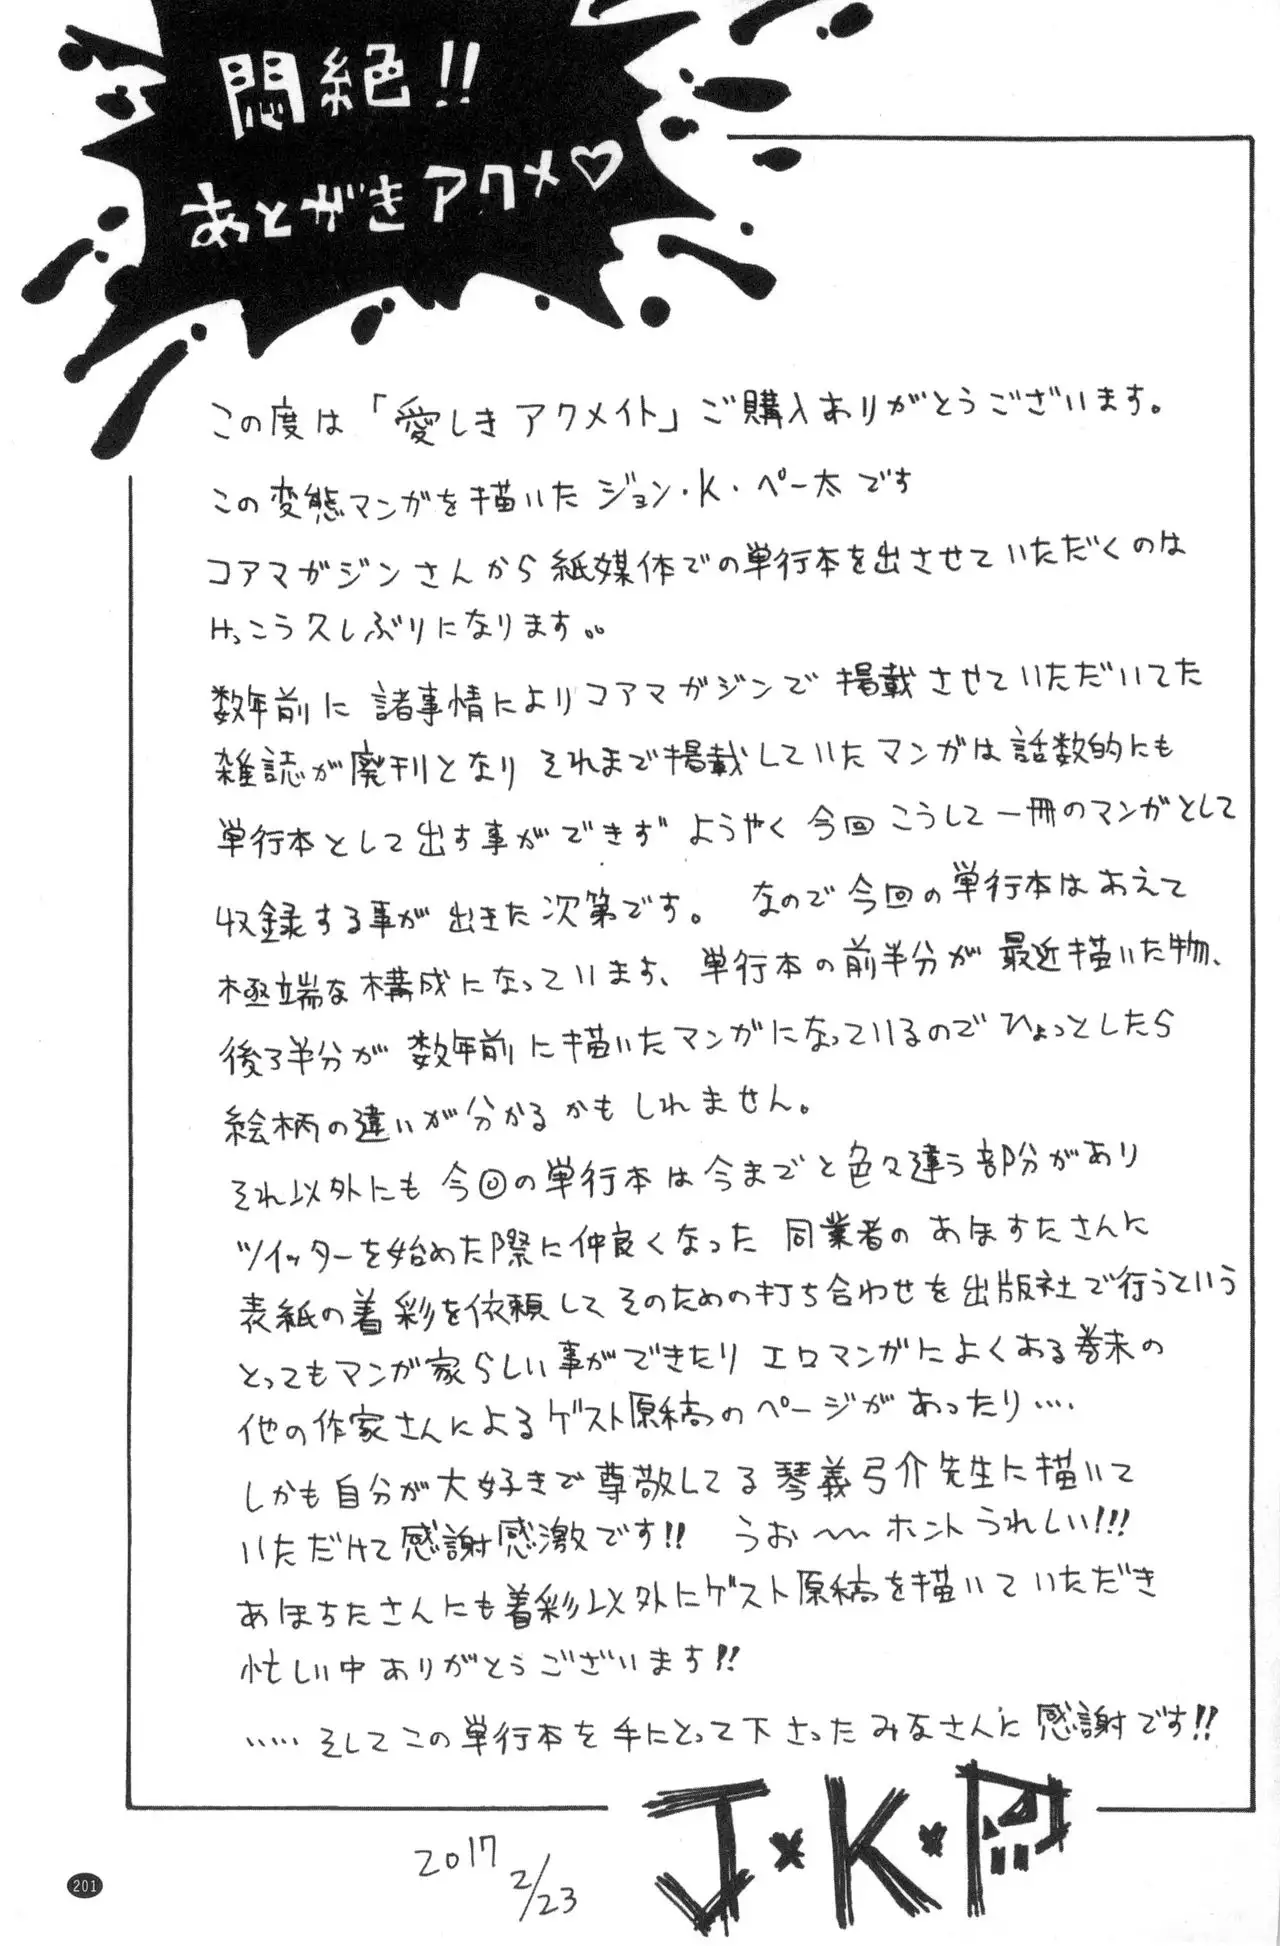 悶絶!!
あとがきアクメ♡
この度は「愛しきアクメイト」ご購入ありがとうございます。
この変態マンガを描いたジョン・K・ペー太です
コアマガジンさんから紙媒体での単行本を出させていただくのは
けっこう久しぶりになります。。
数年前に諸事情によりコアマガジンで掲載させていただいてた
雑誌が廃刊となり それまで掲載していたマンガは話数的にも
単行本として出す事ができず ようやく今回こうして一冊のマンガとして
収録する事が出きた次第です。 なので今回の単行本はあえて
極端な構成になっています、単行本の前半分が最近描いた物、
後ろ半分が数年前に描いたマンガになっているのでひょっとしたら
絵柄の違いが分かるかもしれません。
それ以外にも今回の単行本は今までと色々違う部分があり
ツイッターを始めた際に仲良くなった同業者のあほすたさんに
表紙の着彩を依頼してそのための打ち合わせを出版社で行うという
とってもマンガ家らしい事ができたりエロマンガによくある巻末の
他の作家さんによるゲスト原稿のページがあったり‥‥
しかも自分が大好きで尊敬してる琴義弓介先生に描いて
いただけて感謝感激です!! うお〜〜ホントうれしい!!!
あほすたさんにも着彩以外にゲスト原稿を描いていただき
忙しい中ありがとうございます!!
‥‥‥そしてこの単行本を手にとって下さったみなさんに感謝です!!
J×K×P
2017 2/23
201